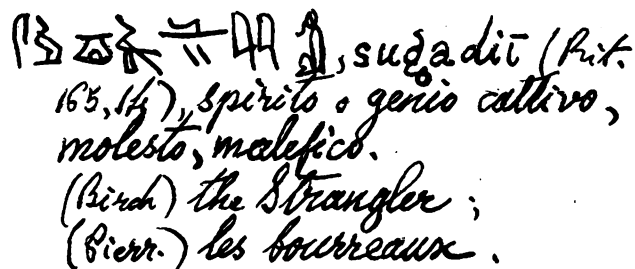 , sugadiī (Rit.
165, 14), spirito o genio cattivo,
molesto, malefico.
(Birch) the Strangler ;
(Pierr.) les bourreaux .